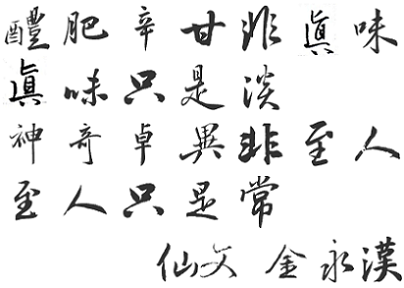 醲肥辛甘非眞味
眞味只是淡
神奇卓異非至人
至人只是常
仙文 金永漢